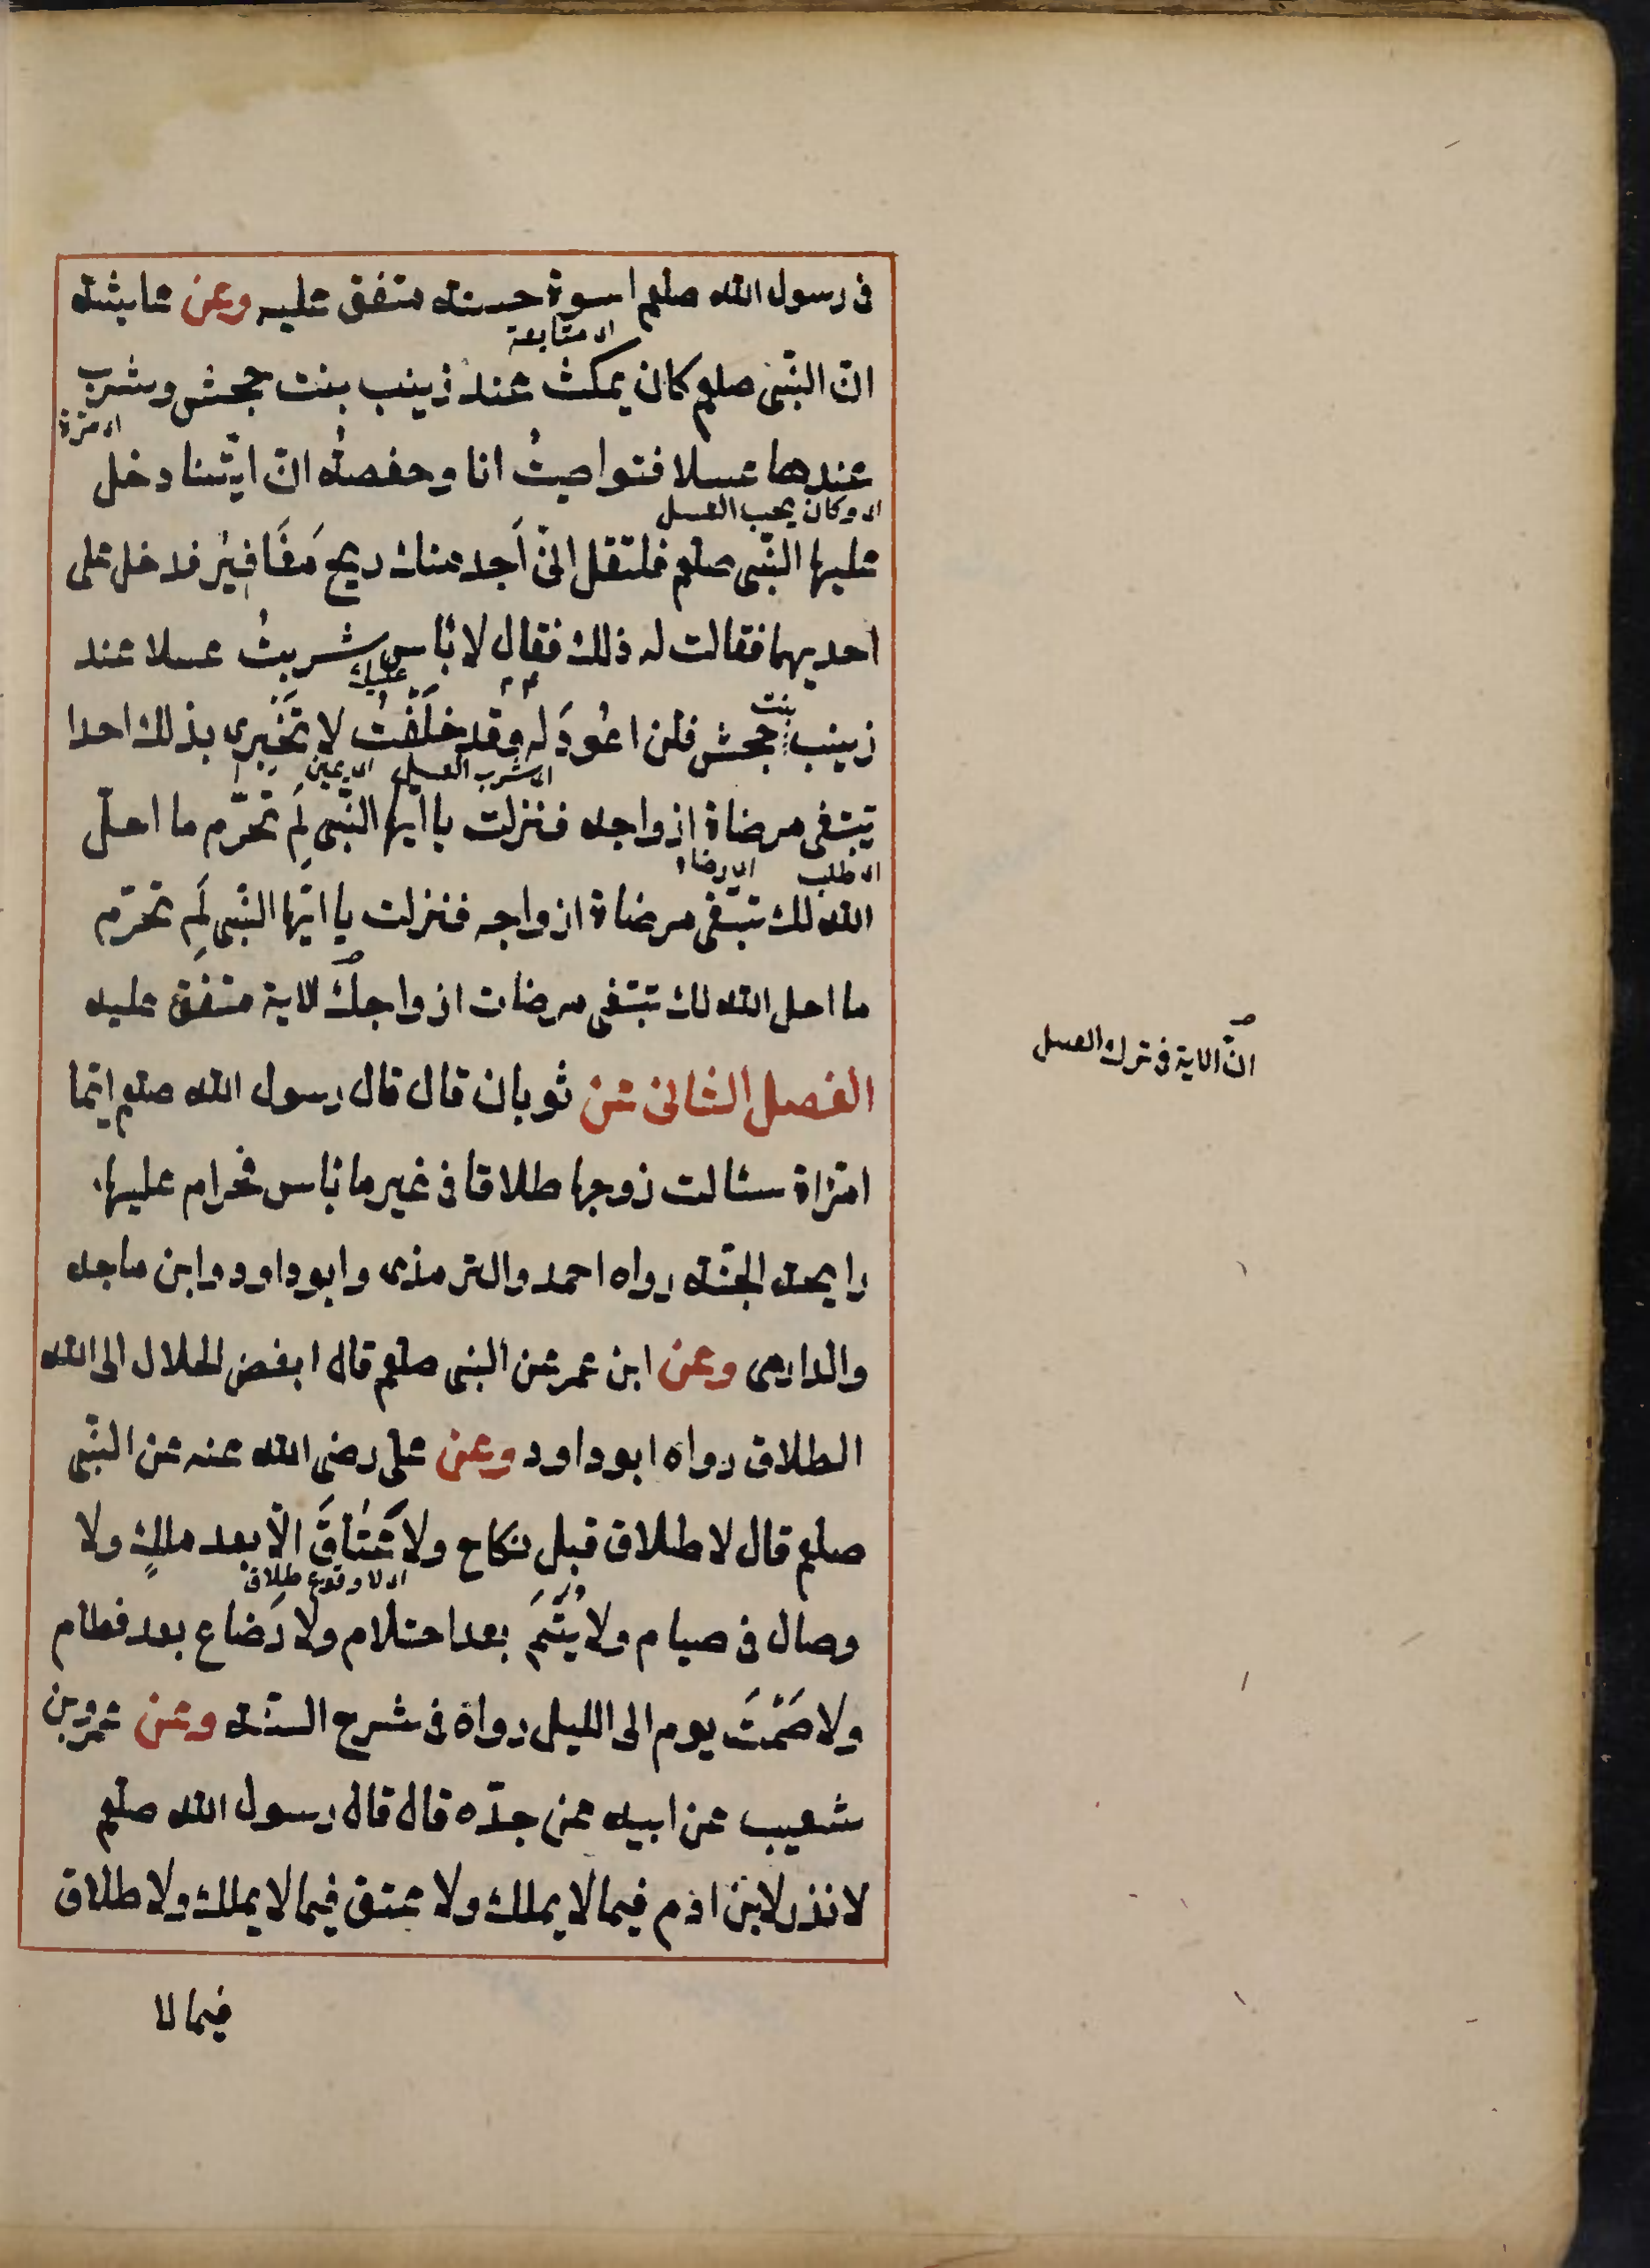 فى رسول الله صلعم اسوة حسنة متفق عليه وعن عايشة
اى متابعة
انّ النّبى صلعم كان يمكث عند زينب بنت جحش وشرب
اى مرة
عندها عسلا فتواصيتُ انا وحفصةُ انّ ايّتنا دخل
اى وكان يحب العسل
عليها النّبى صلعم فلتقل انّى اَجد منك ريح مَغَافِيْر فدخل على
احديهما فقالت له ذلك فقال لا بٔاس شربتُ عسلا عند
عليك
زينب بنت جحش فلن اعُودَ له وقد حَلَفْتُ لا تُخْبِرى بذلك احدا
اى شرب العسل اى يمين
تبتغى مرضاة ازواجه فنزلت يا ايها النّبى لِمَ تحرّم ما احلّ
اى طلب اى رضاء
الله لك تبتغى مرضاة ازواجه فنزلت يا ايّها النّبى لِمَ تحرّم
ما احل الله لك تبتغى مرضات ازواجك الاية متفق عليه
انّ الاية فى ترك العسل
الفصل الثانى عن ثوبان قال قال رسول الله صلعم ايّما
امرٔاة سئالت زوجها طلاقا فى غير ما بٔاس فحرام عليها
رايحة الجنّة رواه احمد والترمذى وابو داود وابن ماجه
والدارمى وعن ابن عمر عن النبى صلعم قال ابغض الحلال الى الله
الطلاق رواه ابو داود وعن على رضى الله عنه عن النّبى
صلعم قال لا طلاق قبل نكاح ولا عَتَاقَ الّا بعد ملكٍ ولا
اى لا وقوع طلاق
وصال فى صيام ولا يُتْمَ بعد احتلام ولا رَضاع بعد فطام
ولا صَمْتَ يوم الى الليل رواه فى شرح السنّة وعن عمرو بن
شعيب عن ابيه عن جدّه قال قال رسول الله صلعم
لا نذر لابن ادم فيما لا يملك ولا عتق فيما لا يملك ولا طلاق
فيما لا